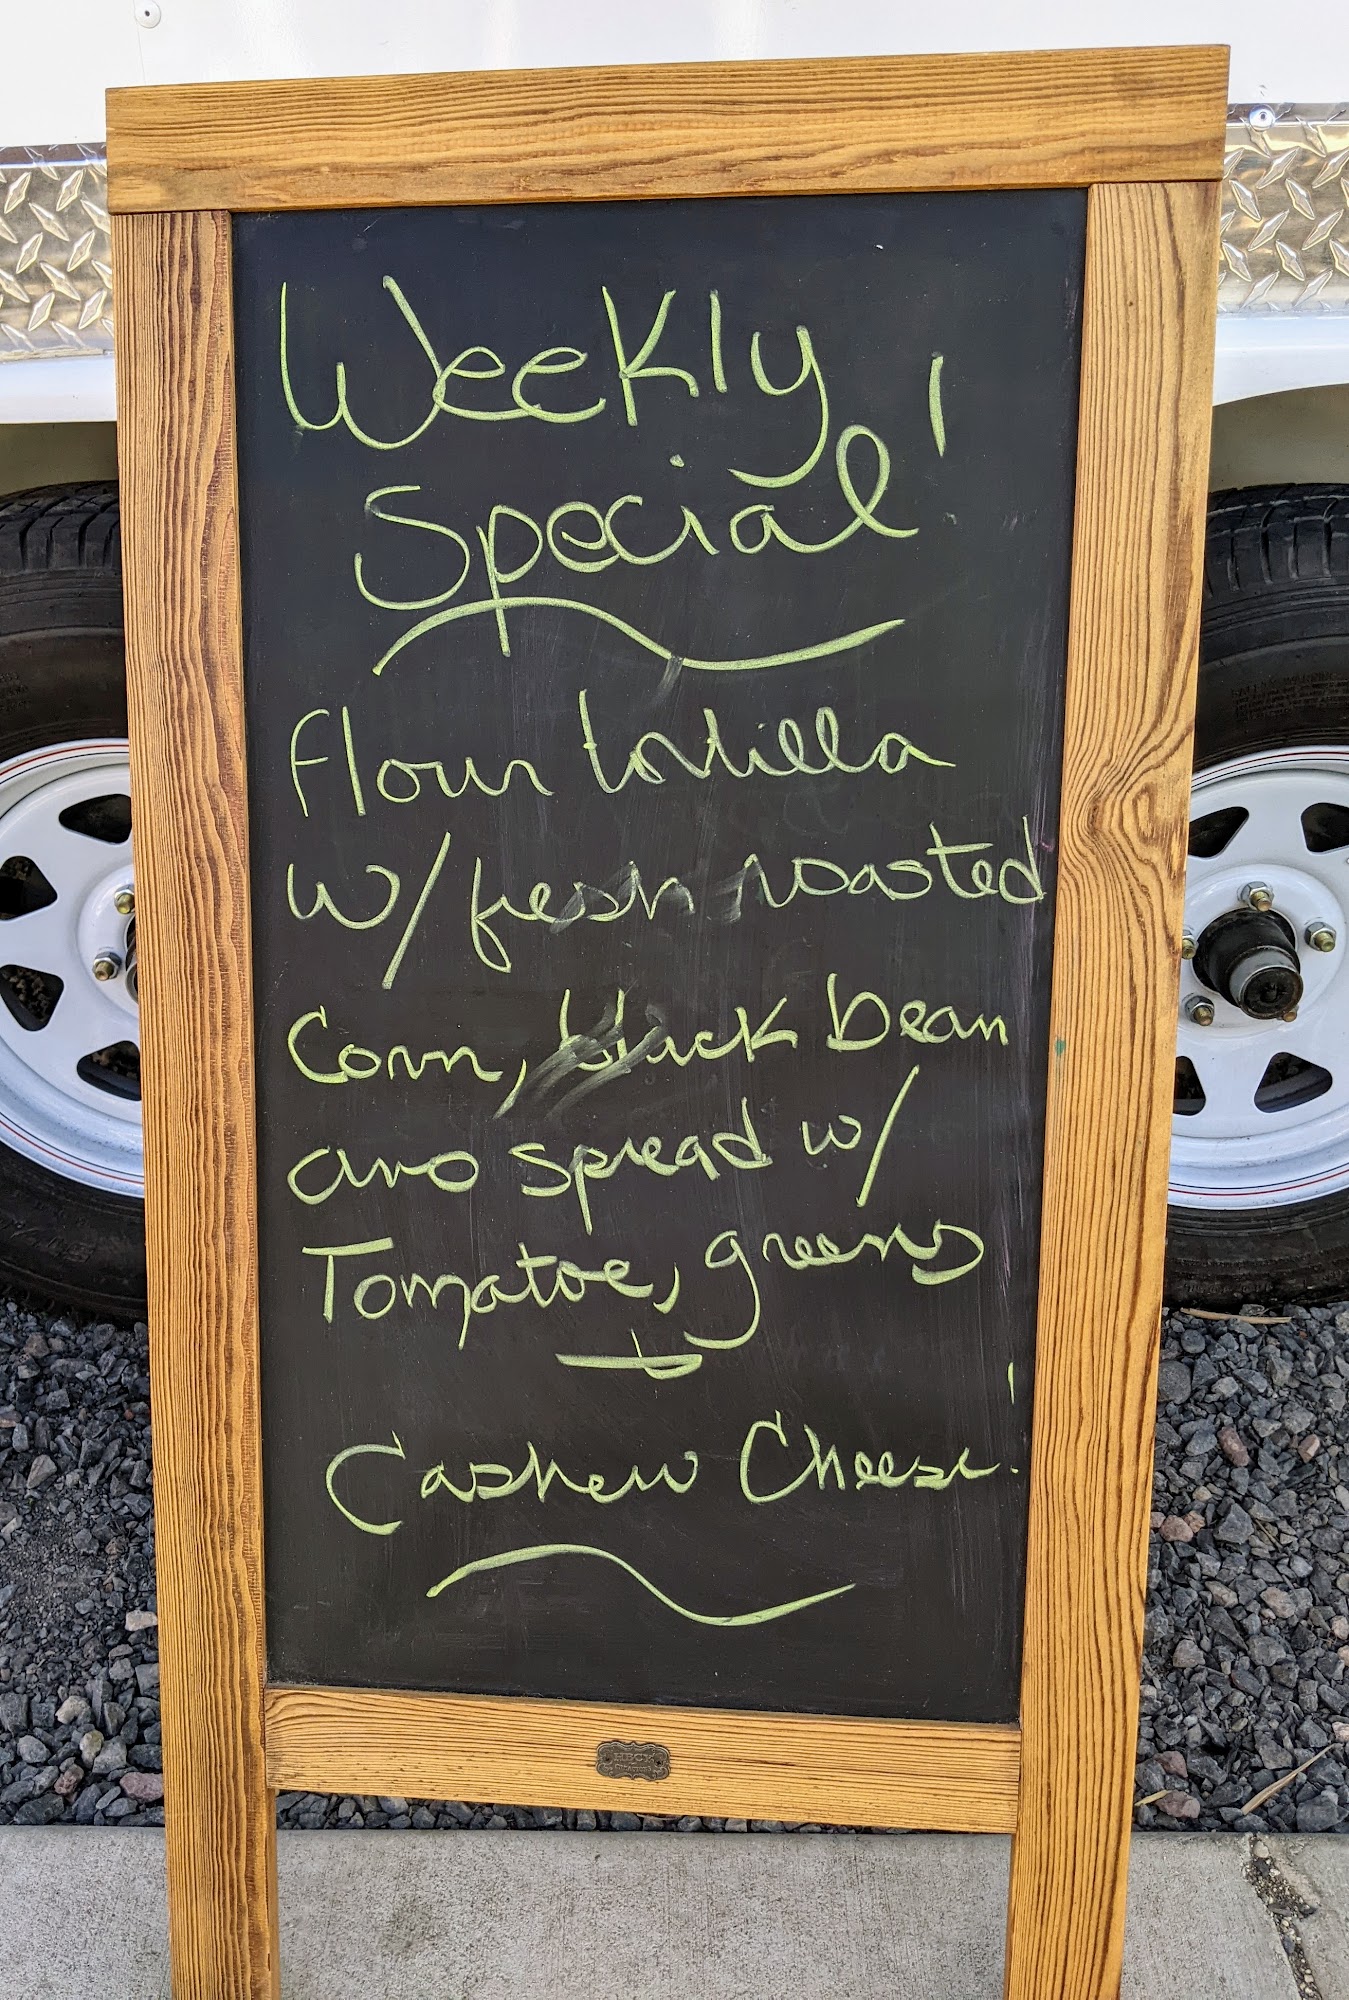 Weekly
Special!
Flour tortilla
w/fresh roasted
Corn, black bean
avo spread w/
Tomatoe, greens
&
Cashew Cheese!
HECK